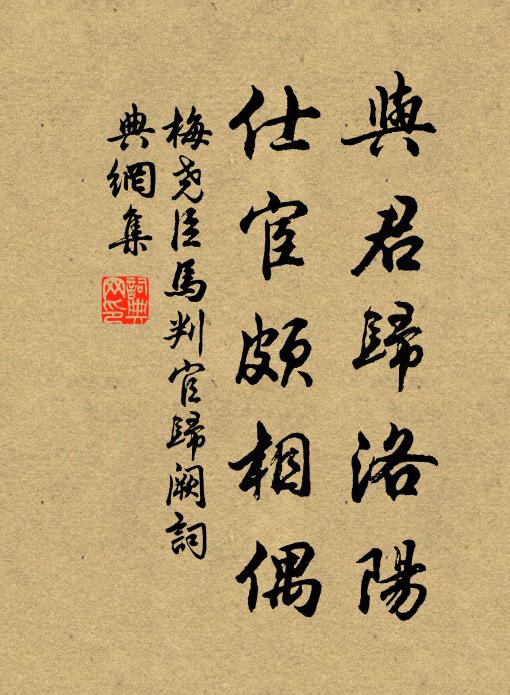 與君歸洛陽
仕宦頗相偶
梅堯臣馬判官歸闕詞
典網集
詞典網印